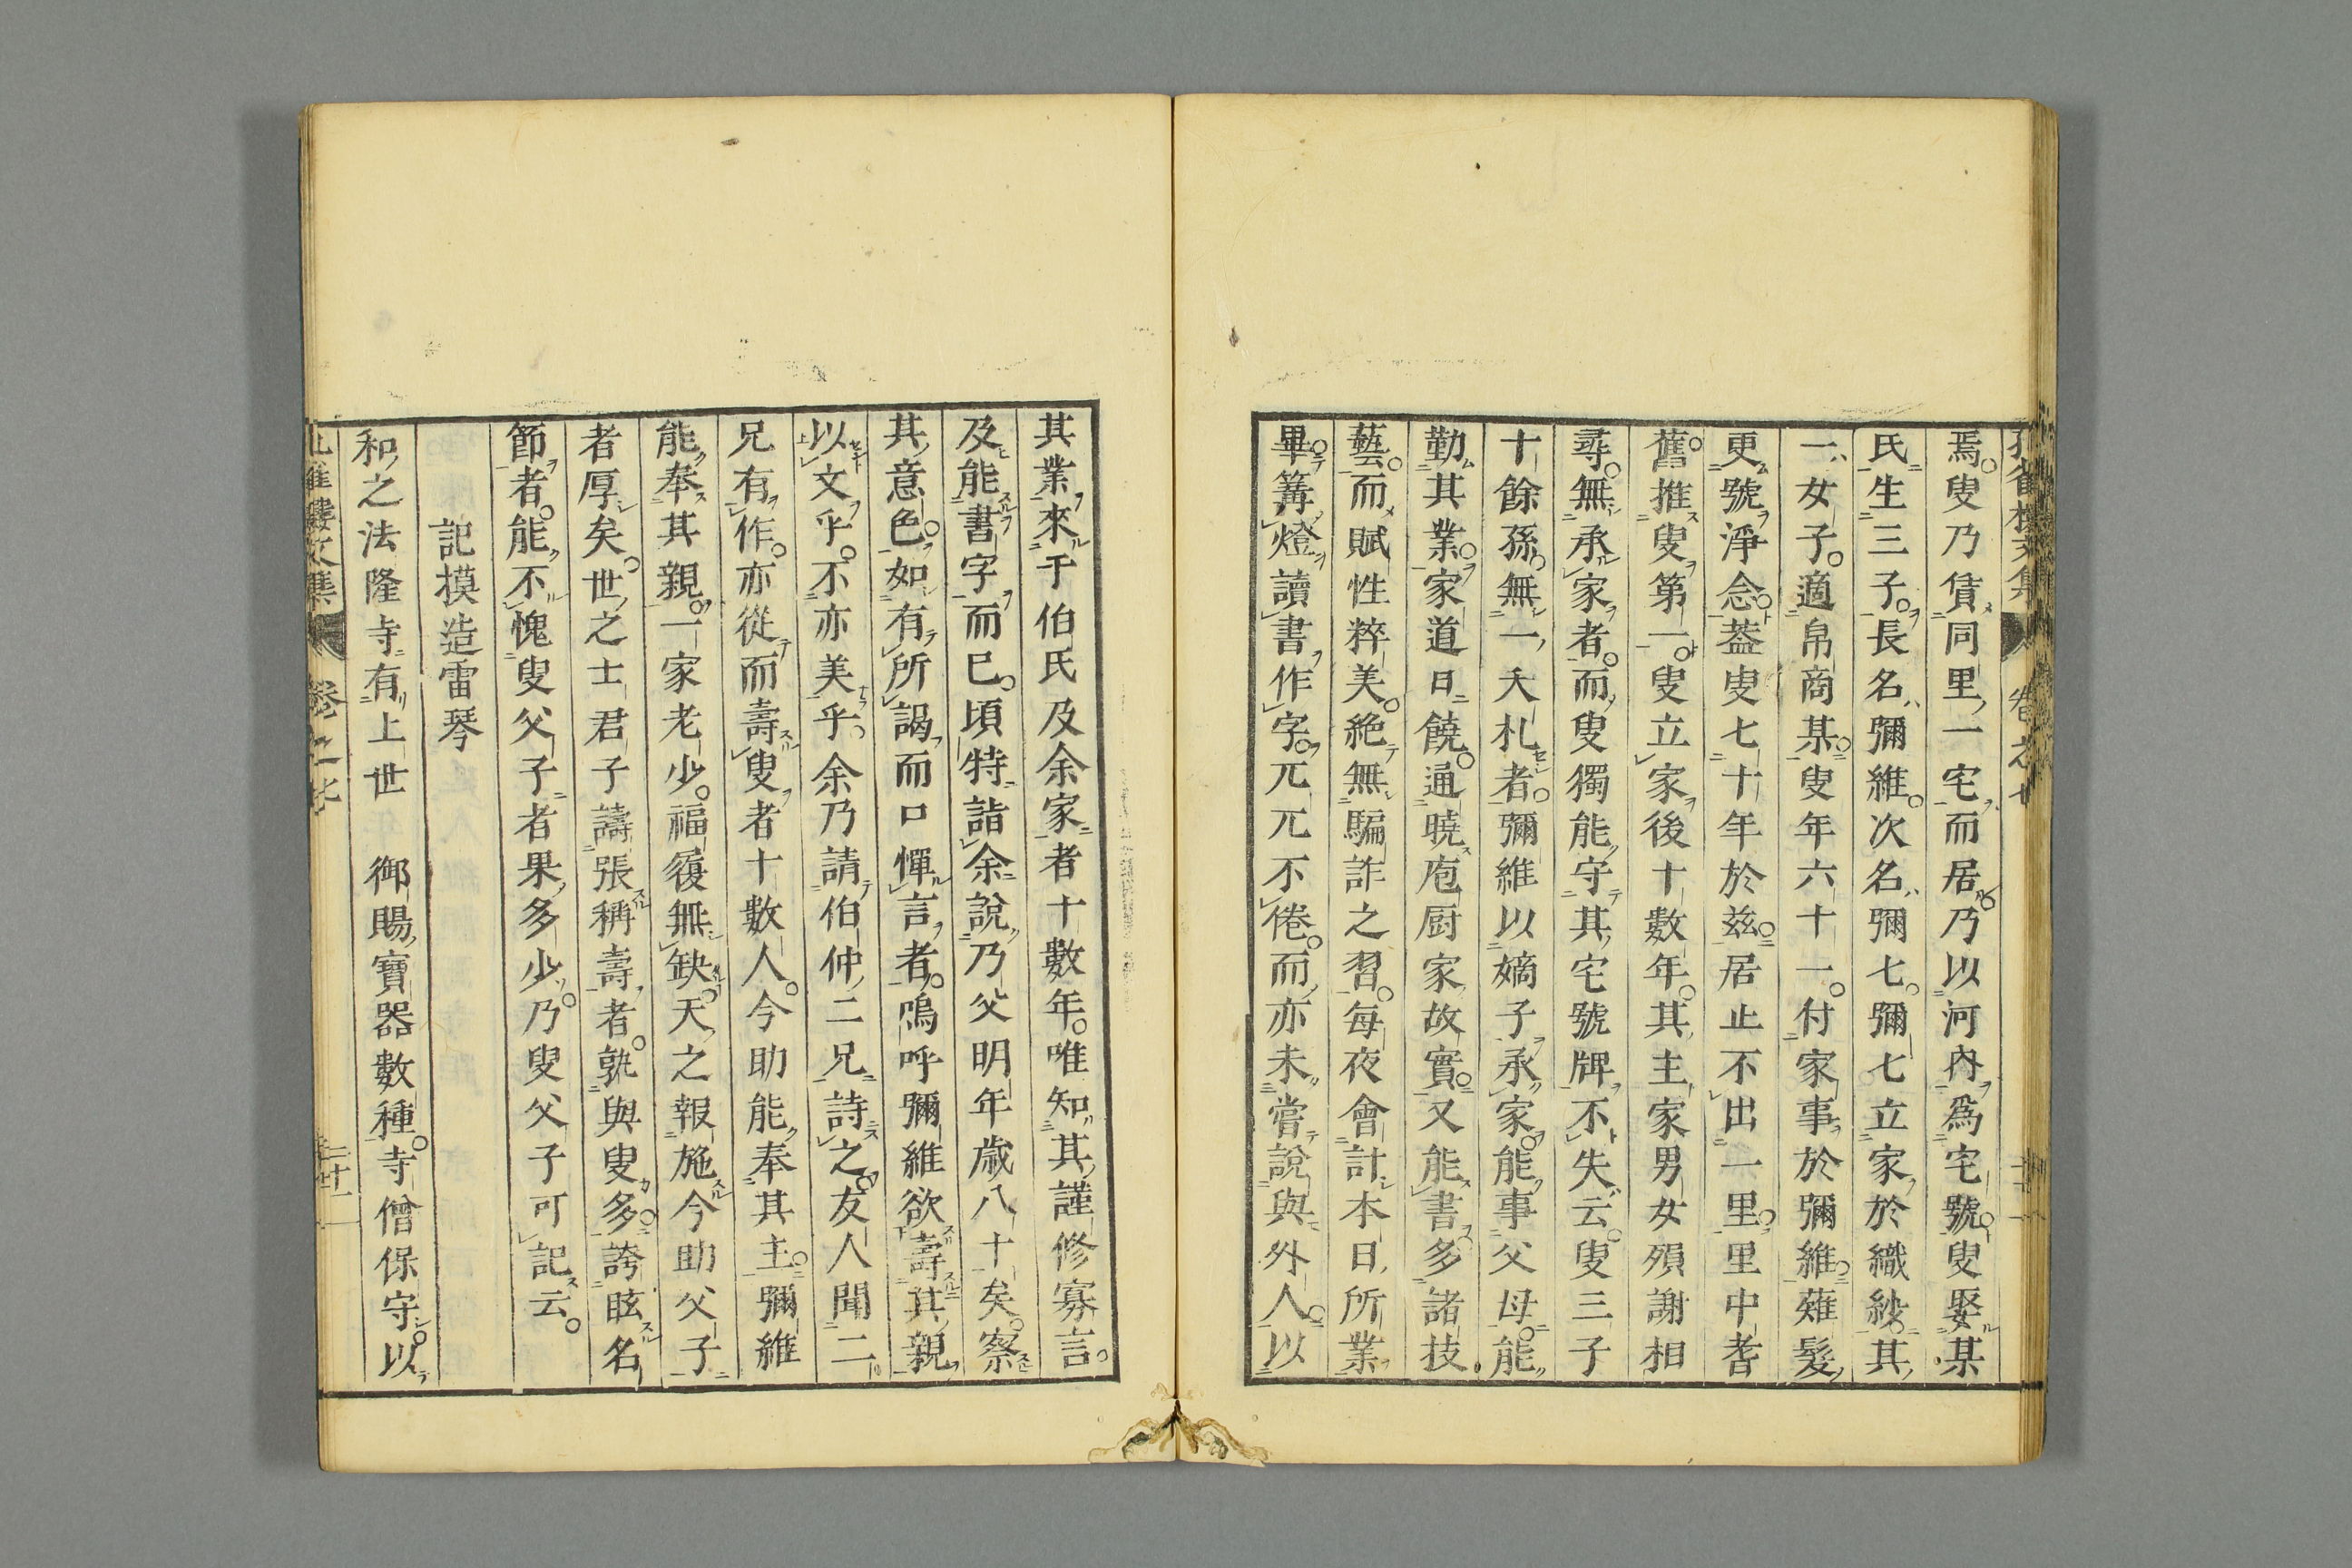 焉叟乃賃同里一宅而居乃以河內爲宅號叟娶某
氏生三子長名彌維次名彌七彌七立家於織紗其
一女子適帛商某叟年六十一付家事於彌維薙髮
更號淨念葢叟七十年於玆居止不出一里里中耆
舊推叟第一叟立家後十數年其主家男女殞謝相
尋無承家者而叟獨能守其宅號牌不失云叟三子
十餘孫無一夭札者彌維以嫡子承家能事父母能
勤其業家道日饒通曉庖厨家故實又能書多諸技
藝而賦性粹美絶無騙詐之習每夜會計本日所業
畢篝燈讀書作字兀兀不倦而亦未嘗說與外人以
其業來于伯氏及余家者十數年唯知其謹修寡言
及能書字而已頃特詣余說乃父明年歲八十矣察
其意色如有所謁而口憚言者嗚呼彌維欲壽其親
以文乎不亦美乎余乃請伯仲二兄詩之友人聞二
兄有作亦從而壽叟者十數人今助能奉其主彌維
能奉其親一家老少福履無缺天之報施今助父子
者厚矣世之士君子譸張稱壽者孰與叟多誇眩名
節者能不愧叟父子者果多少乃叟父子可記云
記摸造雷琴
和之法隆寺有上世　御賜寶器數種寺僧保守以